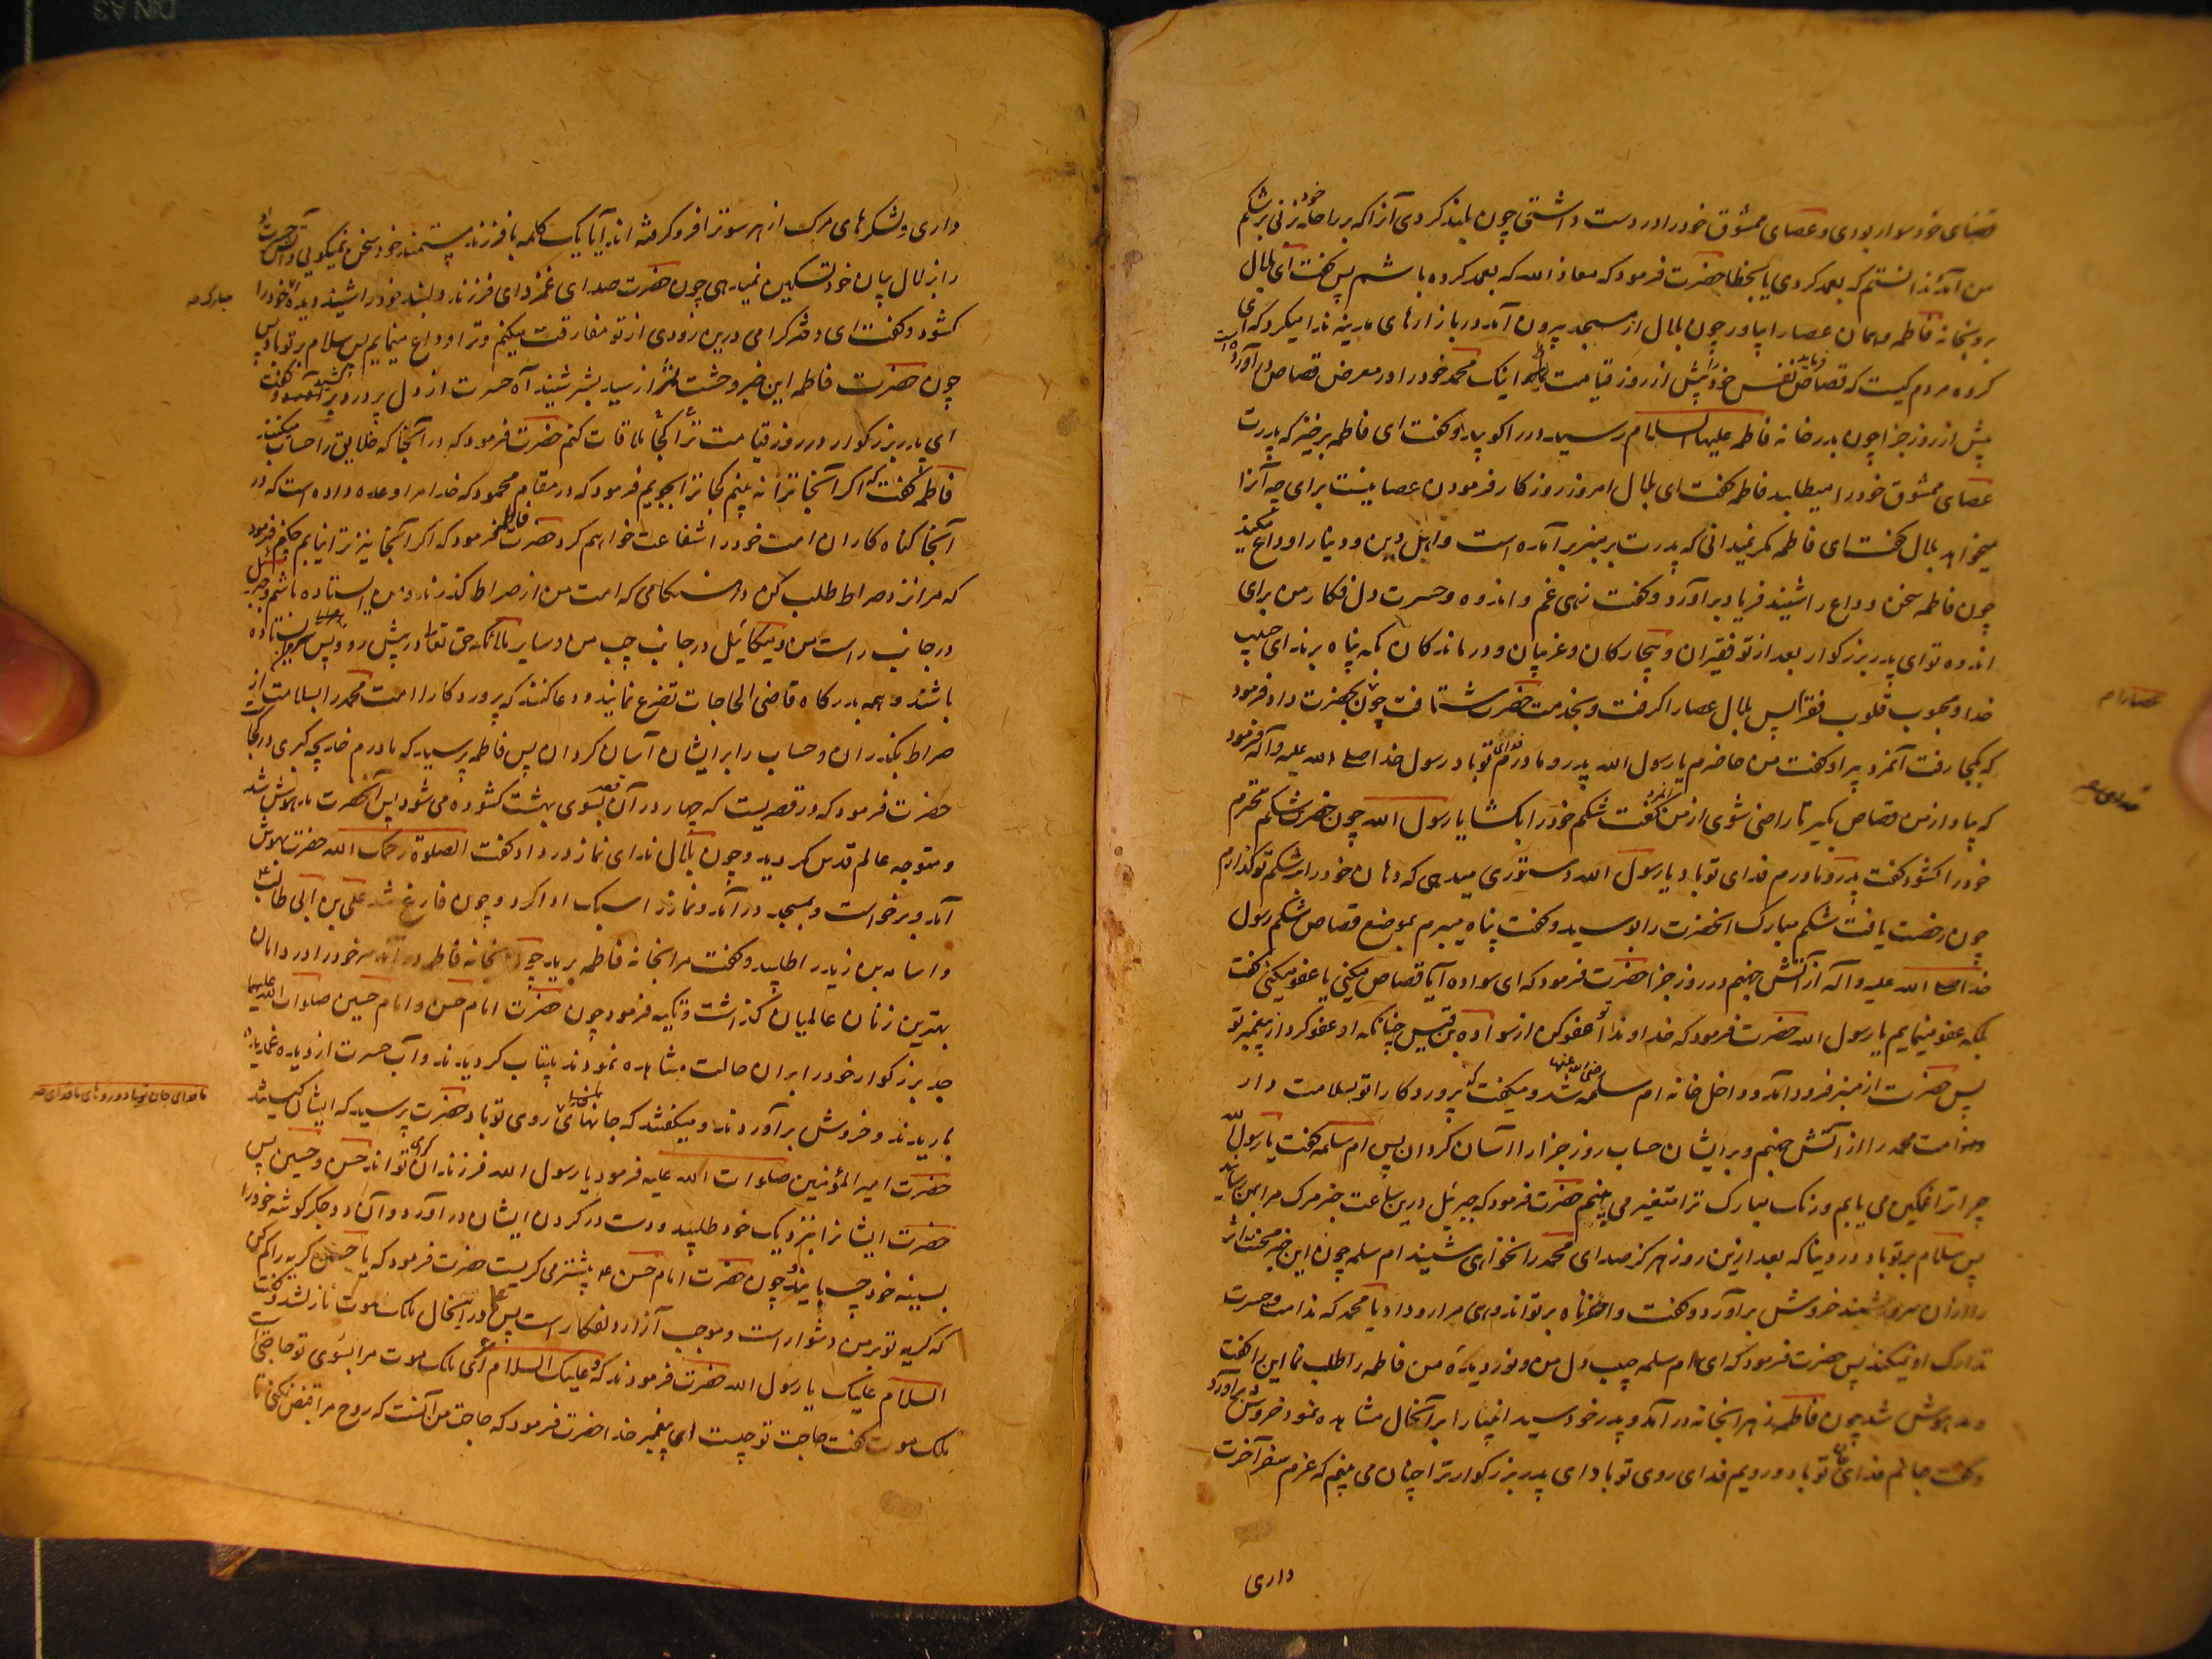 قضبای خود سوار بودی و عصای ممشوق خود را در دست داشتی چون بلند کردی آنرا که بر راحله خود زنی بر شکم
من آمد ندانستم که بعمد کردی یا بخطا حضرت فرمود که معاذ الله که بعمد کرده باشم پس گفت ای بلال
برو بخانه فاطمه و همان عصا را بیاور چون بلال از مسجد بیرون آمد در بازارهای مدینه ندا میکرد که ای
کروه مردم کیست که قصاص فرماید نفس خود را پیش از روز قیامت اینک محمد خود را در معرض قصاص در آورده است
پیش از روز جزا چون بدر خانه فاطمه علیها السلام رسید در را کوبید و گفت ای فاطمه برخیز که پدرت
عصای ممشوق خود را میطلبد فاطمه گفت ای بلال امروز روز کار فرمودن عصا نیست برای چه آنرا
میخواهد بلال گفت ای فاطمه مگر نمیدانی که پدرت بر منبر بر آمده است و اهل دین و دنیا را وداع میکند
چون فاطمه سخن وداع را شنید فریاد برآورد و گفت زهی غم و اندوه و حسرت دل فکار من برای
اندوه تو ای پدر بزرگوار بعد از تو فقیران و بیچارکان و غریبان و درماندکان بکه پناه برند ای حبیب
خدا و محبوب قلوب فقرا پس بلال عصا را گرفت و بخدمت حضرت شتافت چون بحضرت داد فرمود
که بکجا رفت آنمرد پیر او گفت من حاضرم یا رسول الله پدر و مادرم فدای تو باد رسول خدا صلی الله علیه و آله فرمود
که بیا و از من قصاص بگیر تا راضی شوی از من آنمرد گفت شکم خود را بکشا یا رسول الله چون حضرت شکم محترم
خود را کشود گفت پدر و مادرم فدای تو باد یا رسول الله دستوری میدهی که دهان خود را بر شکم تو گذارم
چون رخصت یافت شکم مبارک آنحضرت را بوسید و گفت پناه میبرم بموضع قصاص شکم رسول
خدا صلی الله علیه و آله از آتش جهنم در روز جزا حضرت فرمود که ای سواده آیا قصاص میکنی یا عفو میکنی گفت
بلکه عفو مینمایم یا رسول الله حضرت فرمود که خداوندا تو عفو کن از سواده بن قیس چنانکه او عفو کرد از پیغمبر تو
پس حضرت از منبر فرود آمد و داخل خانه ام سلمه رضی الله عنها شد و میگفت که پروردکارا تو بسلامت دار
امت محمد را از آتش جهنم و بر ایشان حساب روز جزا را آسان کردان پس ام سلمه گفت یا رسول الله
چرا ترا غمکین می یابم و رنک مبارک ترا متغیر می بینم حضرت فرمود که جبرئیل درین ساعت خبر مرک مرا بمن رسانید
پس سلام بر تو باد در دنیا که بعد ازین روز هرکز صدای محمد را نخواهی شنید ام سلمه چون این خبر محنت اثر
را از ان سرور شنید خروش برآورد و گفت واحزناه بر تو اندوهی مرا رو داد یا محمد که ندامت و حسرت
تدارک او نمیکند پس حضرت فرمود که ای ام سلمه حبیب دل من و نور دیده من فاطمه را طلب نما این را گفت
و مدهوش شد چون فاطمه زهرا بخانه در آمد و پدر خود سید انبیا را بر آنحال مشاهده نمود خروش برآورد
و گفت جانم فدای جان تو باد و رویم فدای روی تو باد ای پدر بزرگوار ترا چنان می بینم که عزم سفر آخرت
داری
عصا را م
داری و لشکرهای مرک از هر سو ترا فرو کرفته اند آیا یک کلمه با فرزند مستمند خود سخن نمیکویی و آتش حسرت او
را بزلال بیان خود تسکین نمیدهی چون حضرت صدای غمزدای فرزند دلبند خود را شنید دیده خود را
کشود و گفت ای دختر کرامی درین زودی از تو مفارقت میکنم و ترا وداع مینمایم پس سلام بر تو باد پس
چون حضرت فاطمه این خبر وحشت اثر از سید بشر شنید آه حسرت از دل پر درد بر کشید و گفت
ای پدر بزرگوار در روز قیامت ترا کجا ملاقات کنم حضرت فرمود که در آنجا که خلایق را حساب میکنند
فاطمه گفت که اکر آنجا ترا نه بینم کجا ترا بجویم فرمود که در مقام محمود که خدا مرا وعده داده است که در
آنجا کناه کاران امت خود را شفاعت خواهم کرد حضرت فاطمه فرمود که اکر آنجا نیز ترا نیابم چکنم فرمود
که مرا نزد صراط طلب کن در هنکامی که امت من از صراط کذرند و من ایستاده باشم و جبرئیل
در جانب راست من و میکائیل در جانب چپ من و سایر ملائکه حق تعالی در پیش رو و پس سر من ایستاده
باشند و همه بدرکاه قاضی الحاجات تضرع نمایند و دعا کنند که پروردکارا امت محمد را بسلامت از
صراط بگذران و حساب را بر ایشان آسان کردان پس فاطمه پرسید که مادرم خدیجه کبری در کجا است
حضرت فرمود که در قصریست که چهار در آن قصر بسوی بهشت کشوده می شود پس آنحضرت مدهوش شد
و متوجه عالم قدس کردید و چون بلال ندای نماز در داد و گفت الصلوة رحمک الله حضرت بهوش
آمد و برخواست و بمسجد در آمد و نماز را سبک ادا کرد و چون فارغ شد علی بن ابی طالب
و اسامه بن زید را طلبید و گفت مرا بخانه فاطمه برید چون بخانه فاطمه در آمد سر خود را در دامان
بهترین زنان عالمیان گذاشت و تکیه فرمود چون حضرت امام حسن و امام حسین صلوات الله علیهما
جد بزرگوار خود را بر ان حالت مشاهده نمودند بیتاب کردیدند و آب حسرت از دیده غمدیده
باریدند و خروش برآوردند و میگفتند که جانهای ما فدای روی تو باد حضرت پرسید که ایشان کیستند
حضرت امیر المؤمنین صلوات الله علیه فرمود یا رسول الله فرزندان گرامی تو اند حسن و حسین پس
حضرت ایشانرا بنزدیک خود طلبید و دست در گردن ایشان در آورد و آن دو جگرگوشه خود را
بسینه خود چسبانید و چون حضرت امام حسن ع بیشتر می گریست حضرت فرمود که یا حسن گریه را کم کن
که گریه تو بر من دشوار است و موجب آزار دلفکار است پس در اینحال ملک موت نازل شد و گفت
السلام علیک یا رسول الله حضرت فرمودند که و علیک السلام ای ملک موت مرا بسوی تو حاجتی است
ملک موت گفت حاجت تو چیست ای پیغمبر خدا حضرت فرمود که حاجت من آنست که روح مرا قبض نکنی تا
مبارک صه
ما فدای جان تو باد و روهای ما فدای صه